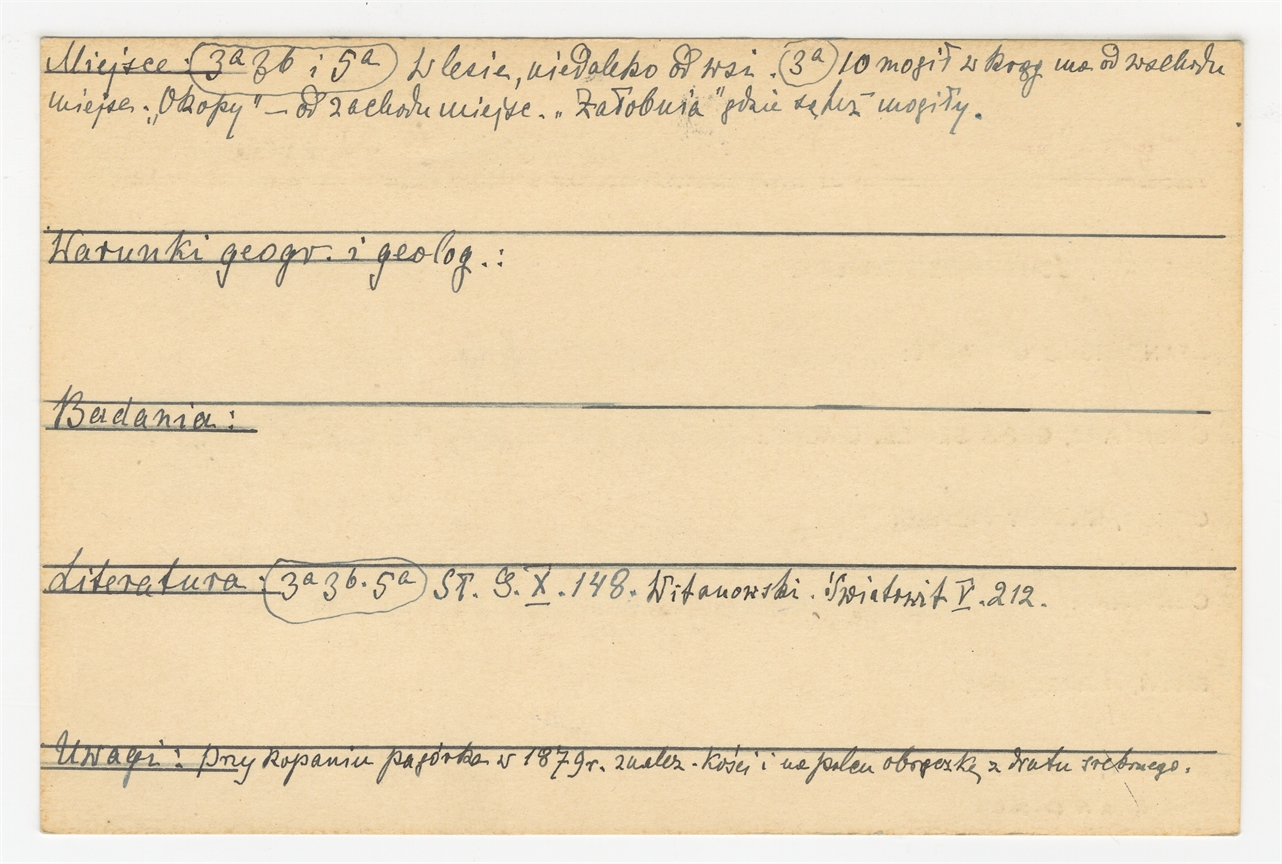 Miejsce: 3a 3b i 5a W lesie, niedaleko od wsi. 3a 10 mogił w krąg ma od wschodu
miejsc. „Okopy" – od zachodu miejsc. „Załobnia" gdzie są też mogiły.
Warunki geogr. i geolog.:
Badania:
Literatura: 3a 3b. 5a Sł. G. X. 148. Witanowski. Światowit V. 212.
Uwagi: przy kopaniu pagórka w 1879 r. znalez. kości i na palcu obrączkę z drutu srebrnego.